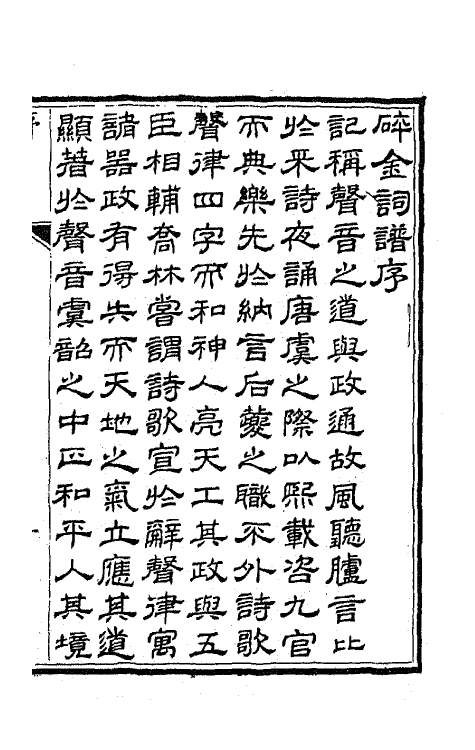 碎金詞譜序
記稱聲音之道與政通故風聽臚言比
於采詩夜誦唐虞之際以熙載咨九官
而典樂先於納言后夔之職不外詩歌
聲律四字而和神人亮天工其政與五
臣相輔喬林嘗謂詩歌宣於辭聲律寓
諸器政有得失而天地之氣立應其道
顯著於聲音虞韶之中正和平人其境
序